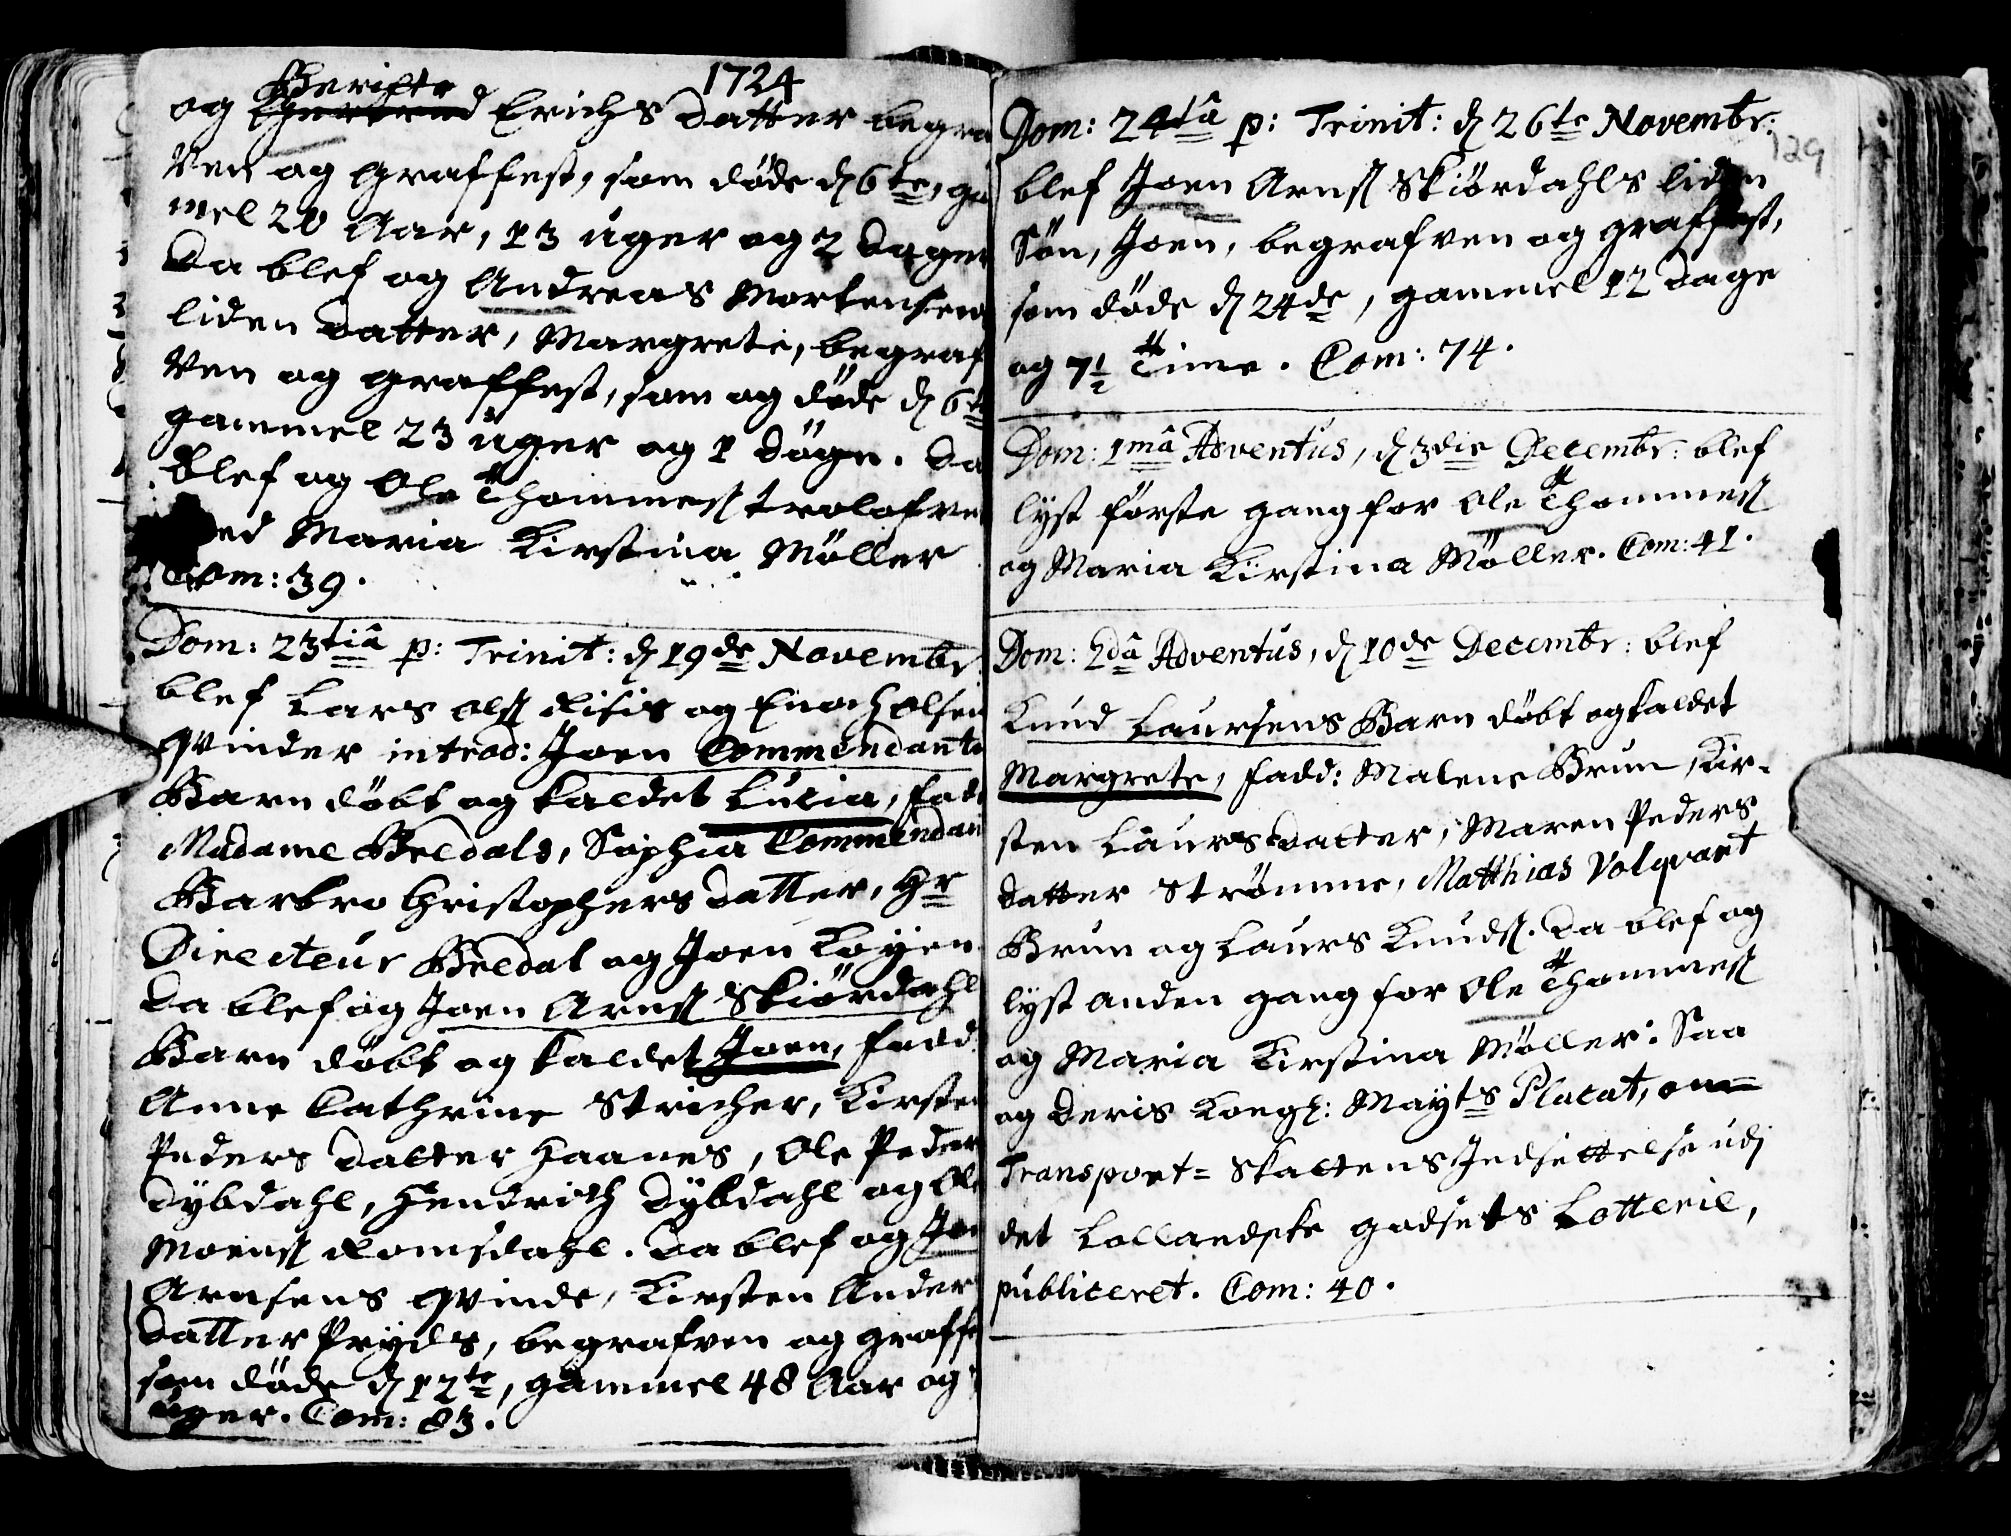 1724
Beritte
og Erichs datter begra
ven og graffest, som døde d 6te, ga
mel 20 Aar, 13 uger og 2 dager
Da blef og Andreas Mortensens
liden datter, Margrete, begraf
ven og graffest, som og døde d 6te
gammel 23 uger og 1 døgn. Da
blef og Ole Thommess trolofvet
med Maria Kirstina Møller
Com: 39.
Dom: 23tiâ p: Trinit: d 19de Novembr:
blef Lars Olss Risis og Enoch Olsens
qvinder introd: Joen Commendants
Barn døbt og kaldet Lucia, fadd
Madame Bredals, Sophia Commendan
Barbro Christophers datter, Hr
Directeur Bredal og Joen Køyen.
Da blef og Joen Arnss Skiördahls
Barn døbt og kaldet Joen, fadd:
Anne Cathrine Stricher, Kirsten
Peders datter Haanes, Ole Peders
Dybdahl, Hendrich Dybdahl og Ole
Moenss Romsdahl. Da blef og Joen
Arnsens qvinde, Kirsten Anders
datter Pryds, begrafven og graffest
som døde d 12te, gammel 48 Aar og
uger. Com: 83.
129
Dom: 24tâ p: Trinit: d 26te Novembr:
blef Joen Arnss Skiördahls liden
Søn, Joen, begrafven og graffest,
som døde d 24de, gammel 12 dage
og 7½ Time. Com: 74.
Dom: 1mâ Adventus, d 3die Decembr: blef
lyst første gang for Ole Thommess
og Maria Kirstina Møller. Com: 41.
Dom: 2dâ Adventus, d 10de Decembr: blef
Knud Laursens Barn døbt og kaldet
Margrete, fadd: Malene Brun, Kir-
sten Laursdatter, Maren Peders
datter Strømme, Matthias Volqvart
Brun og Laurs Knudss. Da blef og
lyst anden gang for Ole Thommess
og Maria Kirstina Møller: Saa
og Deris Kongl: Mayts Placat, om
Transport-Skattens Indsettelse udj
det Lollandske godsets Lotterie,
publiceret. Com: 40.